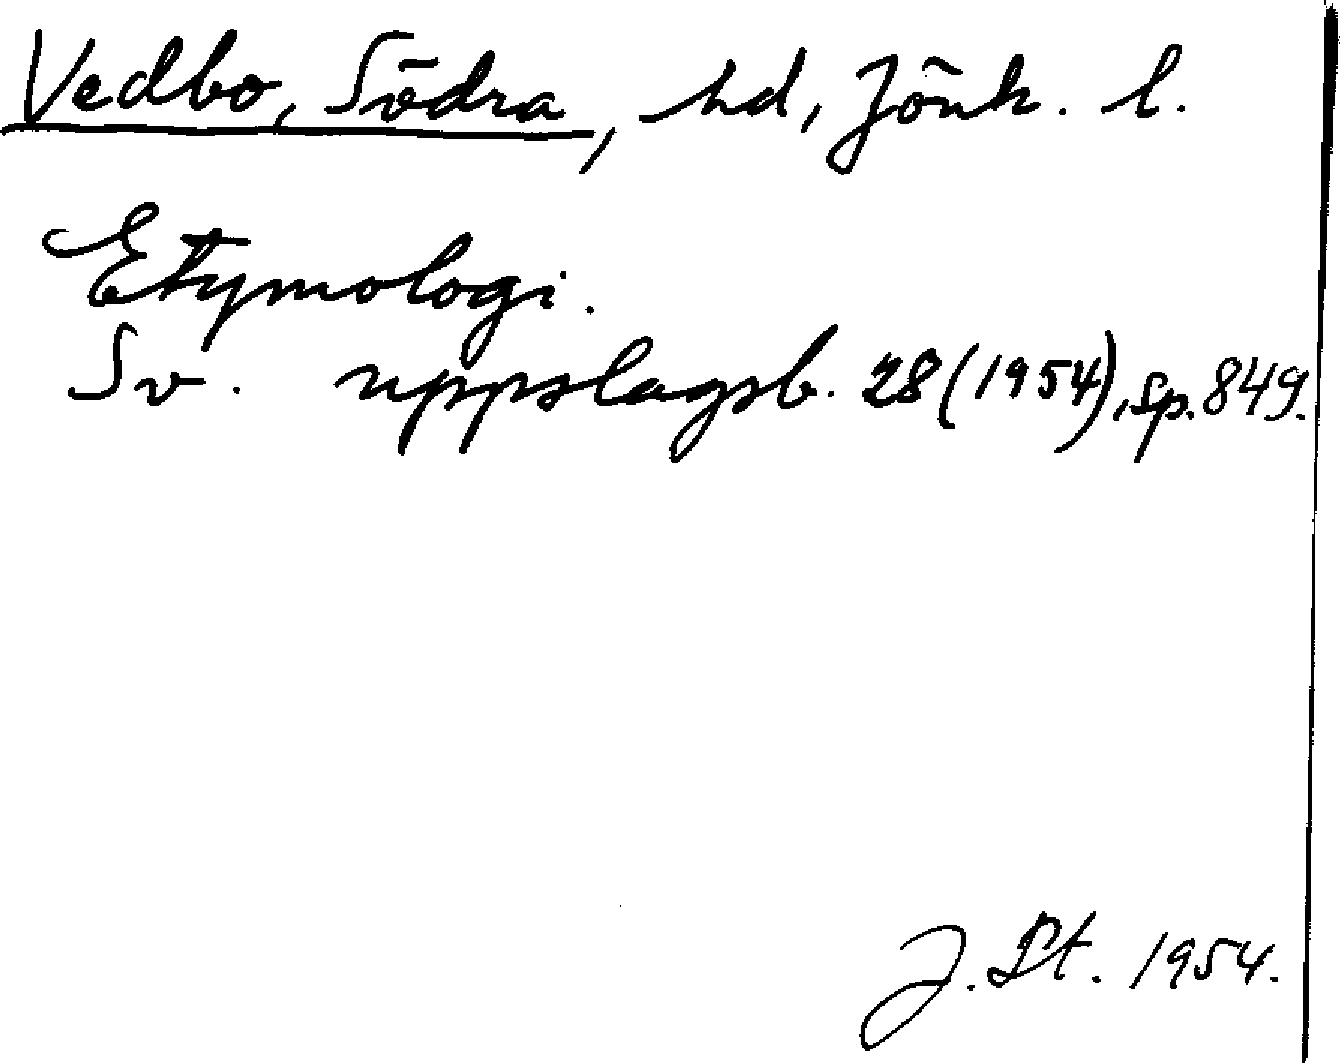 Vedbo, Södra, hd, Jönk. l.
Etymologi.
Sv. uppslagsb. 28 (1954), sp. 849.
J. St. 1954.